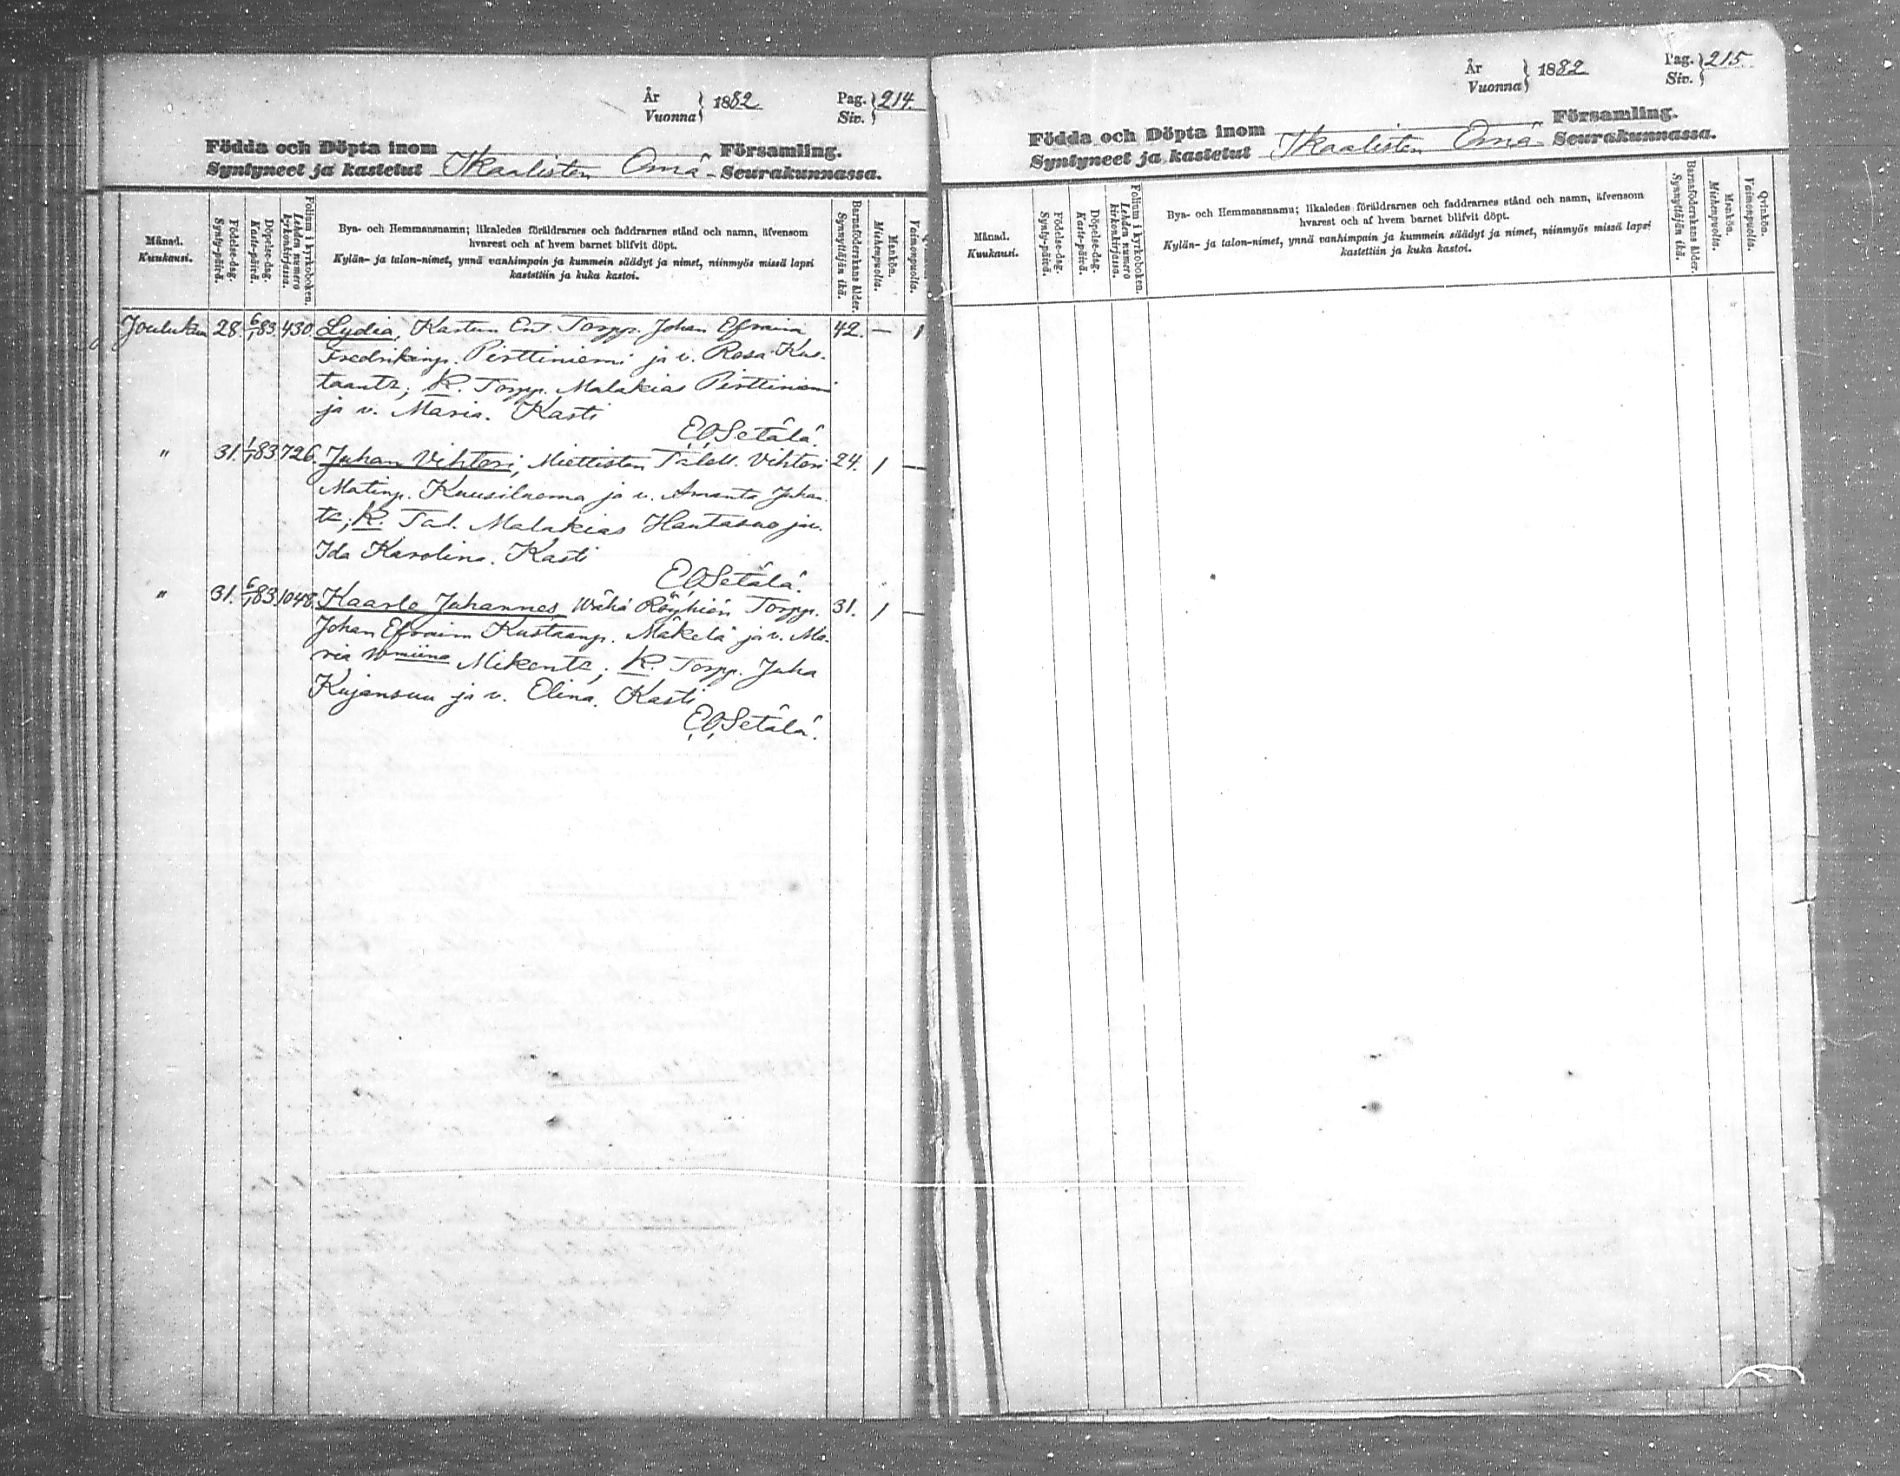 År
Vuonna } 1882
Pag.
Siv. } 214.
Födda och Döpta inom
Syntyneet ja kastetut
Ikaalisten Omä
Församling.
Seurakunnassa.
Månad.
Kuukausi.
Födelse-dag.
Synty-päivä.
Döpelse-dag.
Kaste-päivä.
Folium i kyrkoboken.
Lehden numero kirkonkirjassa.
Bya- och Hemmansnamn; likaledes föräldrarnes och faddrarnes stånd och namn, äfvensom
hvarest och af hvem barnet blifvit döpt.
Kylän- ja talon-nimet, ynnä vanhimpain ja kummein säädyt ja nimet, niinmyös missä lapsi
kastettiin ja kuka kastoi.
Barnaföderskans ålder.
Synnyttäjän ikä.
Mankön.
Miehenpuolia.
Vaimonpuolia.
Jouluk. 28. 6/1 83. 430. Lydia, Torpp. Johan Efraim 42. — 1
Fredrikinp. Pirttiniemi ja v. Rosa Kus-
taantr; K. Torpp. Malakias Pirttiniemi
ja v. Maria. Kasti
E.O.Setälä.
" 31. 1/1 83 726. Juhan Vihtori, Miettisten Vihtori 24. 1 —
Matinp. Kuusiluoma ja v. Amanta Juhan-
tr; K. Tal. Malakias Hautasuo ja v.
Ida Karolina. Kasti
E.O.Setälä.
" 31. 6/1 83 1048. Kaarle Juhannes, Wähä Röyhiön Torpp. 31. 1 —
Johan Efraim Kustaanp. Mäkelä ja v. Ma-
ria Mikontr; K. Torpp. Juha
Kujansuu ja v. Elina. Kasti
E.O.Setälä.
År
Vuonna } 1882
Pag.
Siv. } 215.
Födda och Döpta inom
Syntyneet ja kastetut
Ikaalisten Omä
Församling.
Seurakunnassa.
Månad.
Kuukausi.
Födelse-dag.
Synty-päivä.
Döpelse-dag.
Kaste-päivä.
Folium i kyrkoboken.
Lehden numero kirkonkirjassa.
Bya- och Hemmansnamn; likaledes föräldrarnes och faddrarnes stånd och namn, äfvensom
hvarest och af hvem barnet blifvit döpt.
Kylän- ja talon-nimet, ynnä vanhimpain ja kummein säädyt ja nimet, niinmyös missä lapsi
kastettiin ja kuka kastoi.
Barnaföderskans ålder.
Synnyttäjän ikä.
Mankön.
Miehenpuolia.
Qvinkön.
Vaimonpuolia.